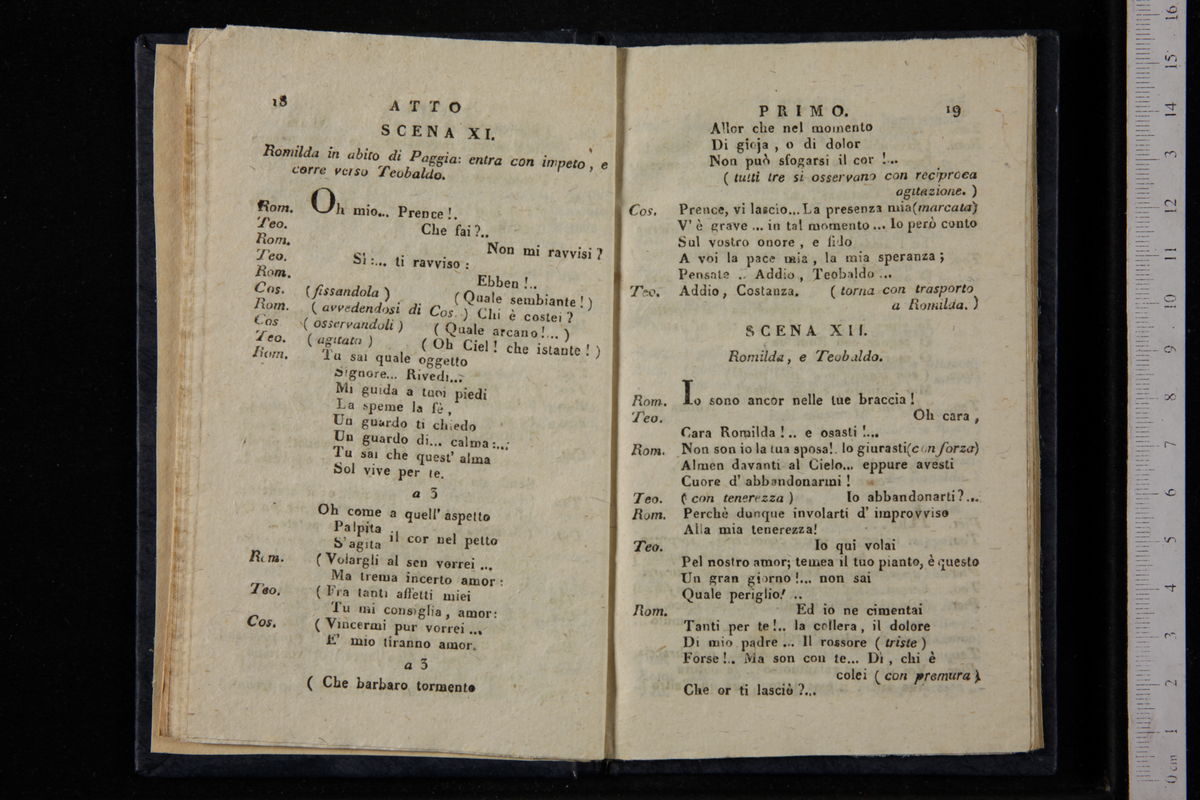 18
ATTO
SCENA XI.
Romilda in abito di Paggia: entra con impeto, e
corre verso Teobaldo.
Rom. Oh mio... Prence!.
Teo. Che fai?..
Rom. Non mi ravvisi?
Teo. Sì:... ti ravviso:
Rom. Ebben!..
Cos. (fissandola) (Quale sembiante!)
Rom. (avvedendosi di Cos.) Chi è costei?
Cos (osservandoli) (Quale arcano!...)
Teo. (agitato) (Oh Ciel! che istante!)
Rom. Tu sai quale oggetto
Signore... Rivedi...
Mi guida a tuoi piedi
La speme la fè,
Un guardo ti chiedo
Un guardo di... calma:..:
Tu sai che quest' alma
Sol vive per te.
a 3
Oh come a quell' aspetto
Palpita
S'agita il cor nel petto
Rom. (Volargli al sen vorrei ...
Ma trema incerto amor:
Teo. (Fra tanti affetti miei
Tu mi consiglia, amor:
Cos. (Vincermi pur vorrei ...
E' mio tiranno amor.
a 3
( Che barbaro tormento
PRIMO. 19
Allor che nel momento
Di gioja, o di dolor
Non può sfogarsi il cor !...
(tutti tre si osservano con reciproca
agitazione.)
Cos. Prence, vi lascio... La presenza mia (marcata)
V' è grave ... in tal momento ... Io però conto
Sul vostro onore, e fido
A voi la pace mia, la mia speranza;
Pensate .. Addio, Teobaldo ...
Teo. Addio, Costanza. (torna con trasporto
a Romilda.)
SCENA XII.
Romilda, e Teobaldo.
Rom. Io sono ancor nelle tue braccia!
Teo. Oh cara,
Cara Romilda!.. e osasti!...
Rom. Non son io la tua sposa!. Io giurasti (con forza)
Almen davanti al Cielo... eppure avesti
Cuore d' abbandonarmi!
Teo. (con tenerezza) Io abbandonarti?...
Rom. Perchè dunque involarti d' improvviso
Alla mia tenerezza!
Teo. Io qui volai
Pel nostro amor; temea il tuo pianto, è questo
Un gran giorno!... non sai
Quale periglio! ..
Rom. Ed io ne cimentai
Tanti per te!.. la collera, il dolore
Di mio padre ... Il rossore (triste)
Forse!.. Ma son con te... Di, chi è
colei (con premura)
Che or ti lasciò?...
0 cm 1 2 3 4 5 6 7 8 9 10 11 12 13 14 15 16